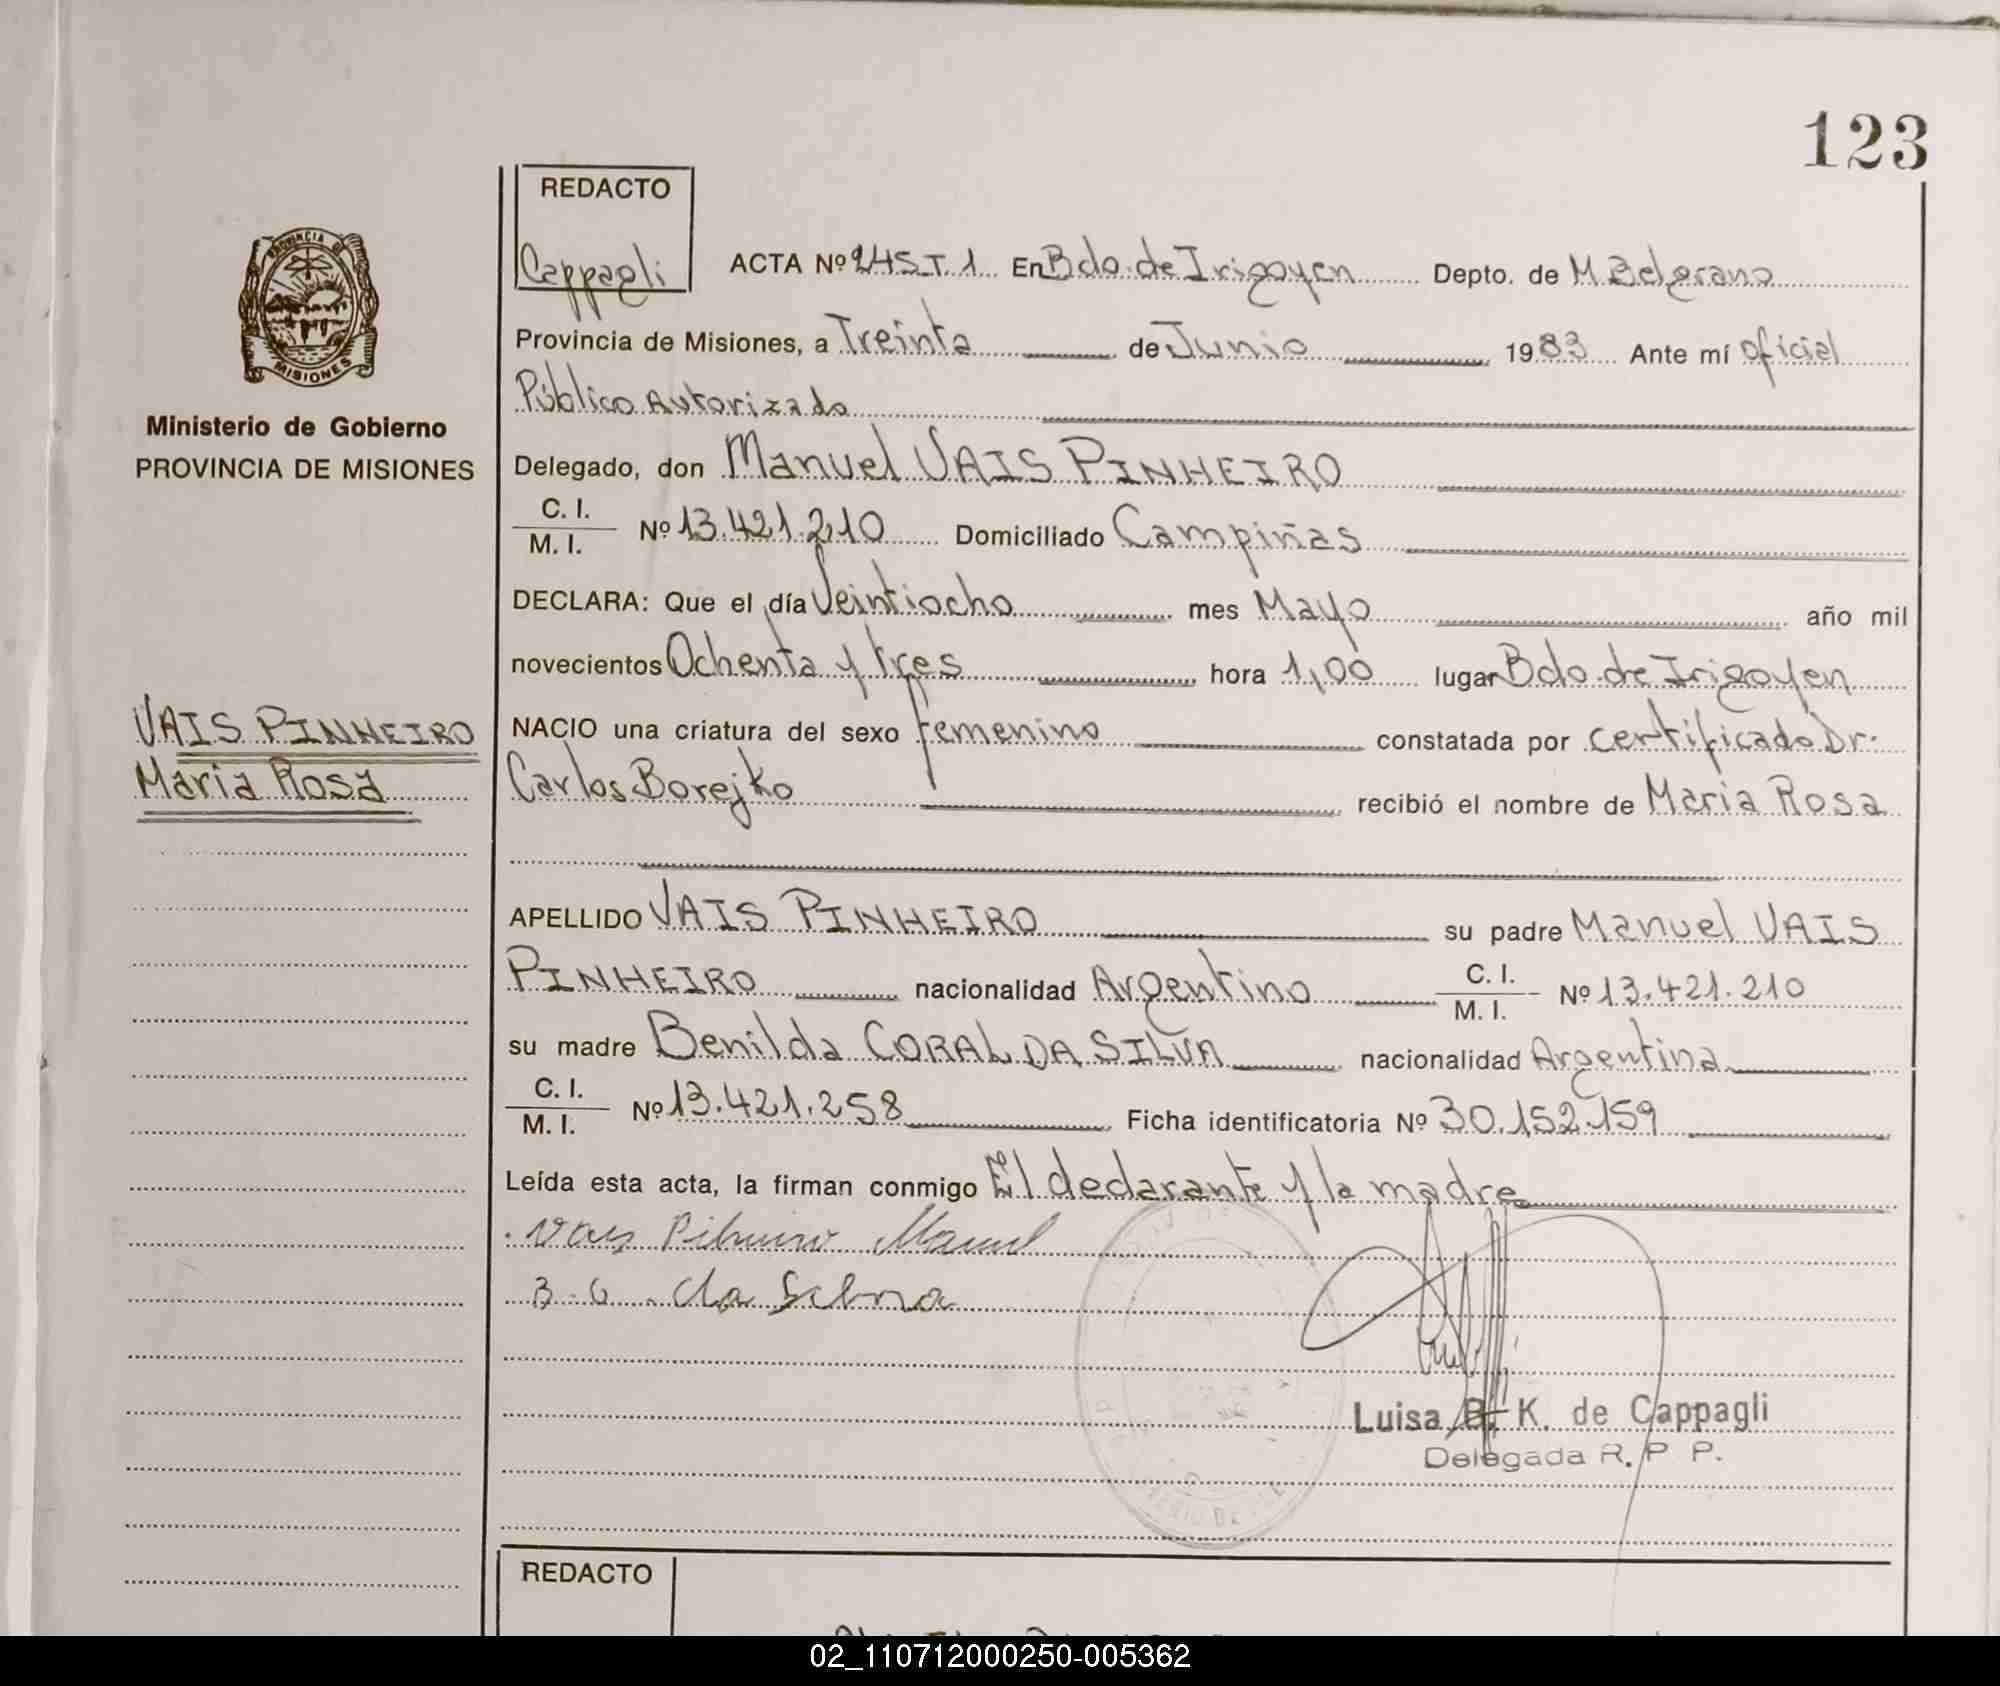 123
REDACTO
Cappagli
ACTA Nº 245 T. 1 En Bdo. de Irigoyen Depto. de M Belgrano
PROVINCIA DE MISIONES
Provincia de Misiones, a Treinta de Junio 1983 Ante mí oficial
Público Autorizado
Ministerio de Gobierno
PROVINCIA DE MISIONES
Delegado, don Manuel VAIS PINHEIRO
C. I.
M. I. Nº 13.421.210 Domiciliado Campiñas
DECLARA: Que el día Veintiocho mes Mayo año mil
novecientos Ochenta y tres hora 1,00 lugar Bdo. de Irigoyen
VAIS PINHEIRO
Maria Rosa
NACIO una criatura del sexo femenino constatada por certificado Dr.
Carlos Borejko recibió el nombre de Maria Rosa
APELLIDO VAIS PINHEIRO su padre Manuel VAIS
PINHEIRO nacionalidad Argentino C. I. M. I. Nº 13.421.210
su madre Benilda CORAL DA SILVA nacionalidad Argentina
C. I.
M. I. Nº 13.421.258 Ficha identificatoria Nº 30.152.159
Leída esta acta, la firman conmigo El declarante y la madre
Vais Piheiro Manuel
B. C. da Selva
Luisa B. K. de Cappagli
Delegada R. P. P.
REDACTO
02_110712000250-005362